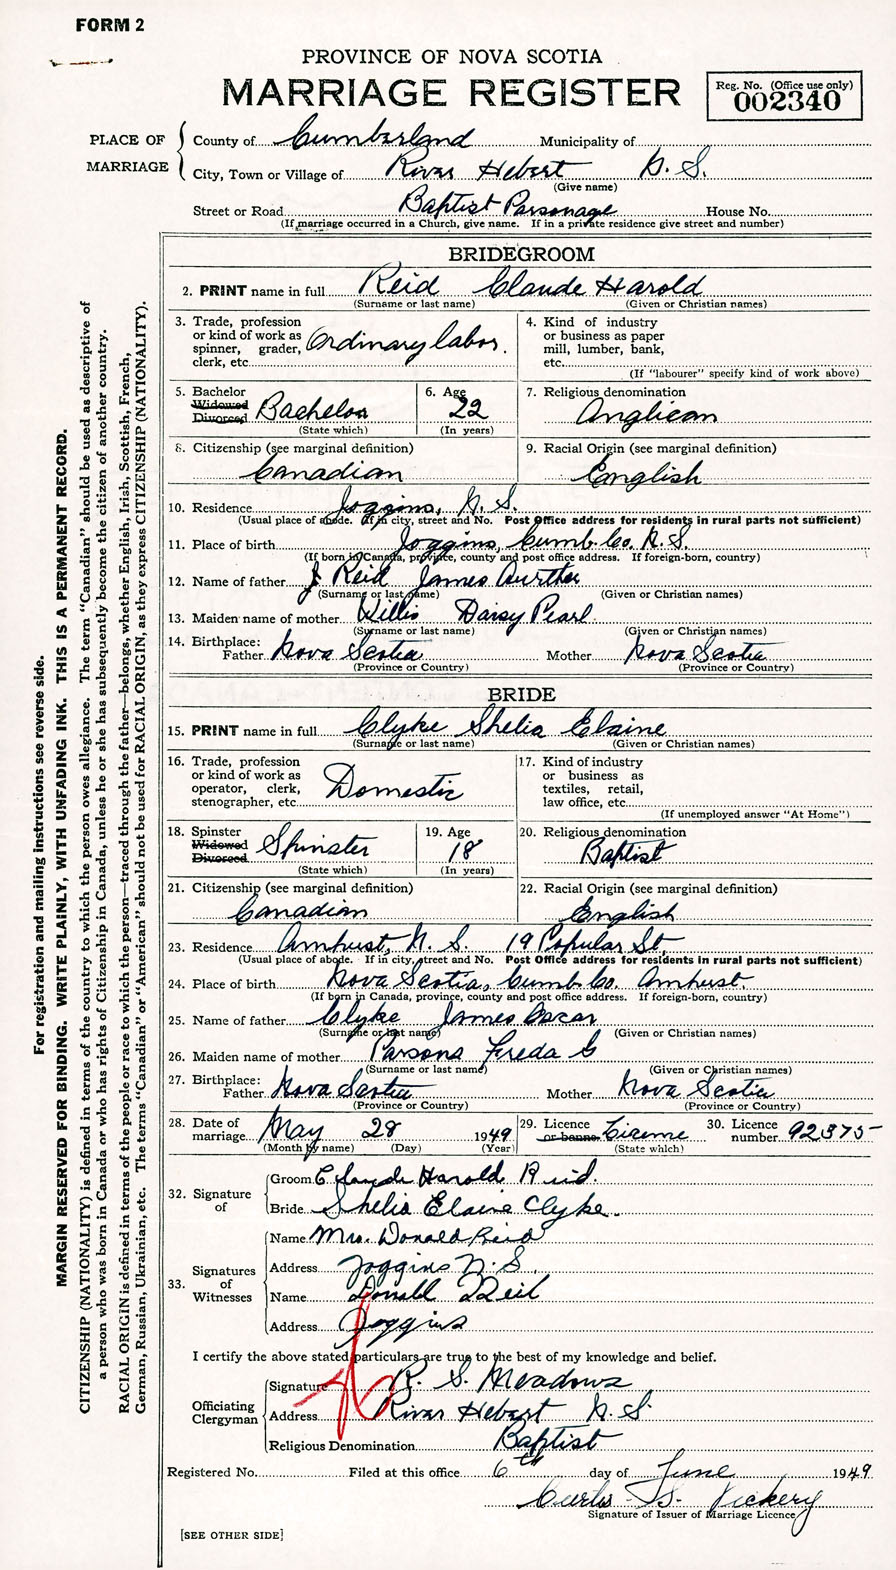 FORM 2
PROVINCE OF NOVA SCOTIA
MARRIAGE REGISTER
Reg. No. (Office use only)
002340
PLACE OF MARRIAGE
County of Cumberland Municipality of
City, Town or Village of River Hebert N. S.
(Give name)
Street or Road Baptist Parsonage House No.
(If marriage occurred in a Church, give name. If in a private residence give street and number)
BRIDEGROOM
2. PRINT name in full Reid Claude Harold
(Surname or last name) (Given or Christian names)
3. Trade, profession or kind of work as spinner, grader, clerk, etc. Ordinary labor.
4. Kind of industry or business as paper mill, lumber, bank, etc.
(If "labourer" specify kind of work above)
5. Bachelor Widowed Divorced Bachelor
(State which)
6. Age 22
(In years)
7. Religious denomination
Anglican
8. Citizenship (see marginal definition)
Canadian
9. Racial Origin (see marginal definition)
English
10. Residence Joggins, N. S.
(Usual place of abode. If in city, street and No. Post Office address for residents in rural parts not sufficient)
11. Place of birth Joggins, Cumb. Co. N. S.
(If born in Canada, province, county and post office address. If foreign-born, country)
12. Name of father J Reid James Aurther
(Surname or last name) (Given or Christian names)
13. Maiden name of mother Willis Daisy Pearl
(Surname or last name) (Given or Christian names)
14. Birthplace: Father Nova Scotia Mother Nova Scotia
(Province or Country) (Province or Country)
BRIDE
15. PRINT name in full Clyke Shelia Elaine
(Surname or last name) (Given or Christian names)
16. Trade, profession or kind of work as operator, clerk, stenographer, etc. Domestic
17. Kind of industry or business as textiles, retail, law office, etc.
(If unemployed answer "At Home")
18. Spinster Widowed Divorced Spinster
(State which)
19. Age 18
(In years)
20. Religious denomination
Baptist
21. Citizenship (see marginal definition)
Canadian
22. Racial Origin (see marginal definition)
English
23. Residence Amhust, N. S. 19 Popular St,
(Usual place of abode. If in city, street and No. Post Office address for residents in rural parts not sufficient)
24. Place of birth Nova Scotia, Cumb. Co. Amhust.
(If born in Canada, province, county and post office address. If foreign-born, country)
25. Name of father Clyke James Oscar
(Surname or last name) (Given or Christian names)
26. Maiden name of mother Parsons Freda G
(Surname or last name) (Given or Christian names)
27. Birthplace: Father Nova Scotia Mother Nova Scotia
(Province or Country) (Province or Country)
28. Date of marriage May 28 1949
(Month by name) (Day) (Year)
29. Licence or banns License
(State which)
30. Licence number 92375
32. Signature of
Groom Claude Harold Reid.
Bride Shelia Elaine Clyke.
33. Signatures of Witnesses
Name Mrs. Donald Reid
Address Joggins N. S.
Name Donald Reid
Address Joggins
I certify the above stated particulars are true to the best of my knowledge and belief.
Officiating Clergyman
Signature R. S. Meadows
Address River Hebert N. S.
Religious Denomination Baptist
Registered No. Filed at this office 6th day of June 1949
Curtis S. Vickery
Signature of Issuer of Marriage Licence
[SEE OTHER SIDE]
For registration and mailing instructions see reverse side.
MARGIN RESERVED FOR BINDING. WRITE PLAINLY, WITH UNFADING INK. THIS IS A PERMANENT RECORD.
CITIZENSHIP (NATIONALITY) is defined in terms of the country to which the person owes allegiance. The term "Canadian" should be used as descriptive of
a person who was born in Canada or who has rights of Citizenship in Canada, unless he or she has subsequently become the citizen of another country.
RACIAL ORIGIN is defined in terms of the people or race to which the person—traced through the father—belongs, whether English, Irish, Scottish, French,
German, Russian, Ukrainian, etc. The terms "Canadian" or "American" should not be used for RACIAL ORIGIN, as they express CITIZENSHIP (NATIONALITY).